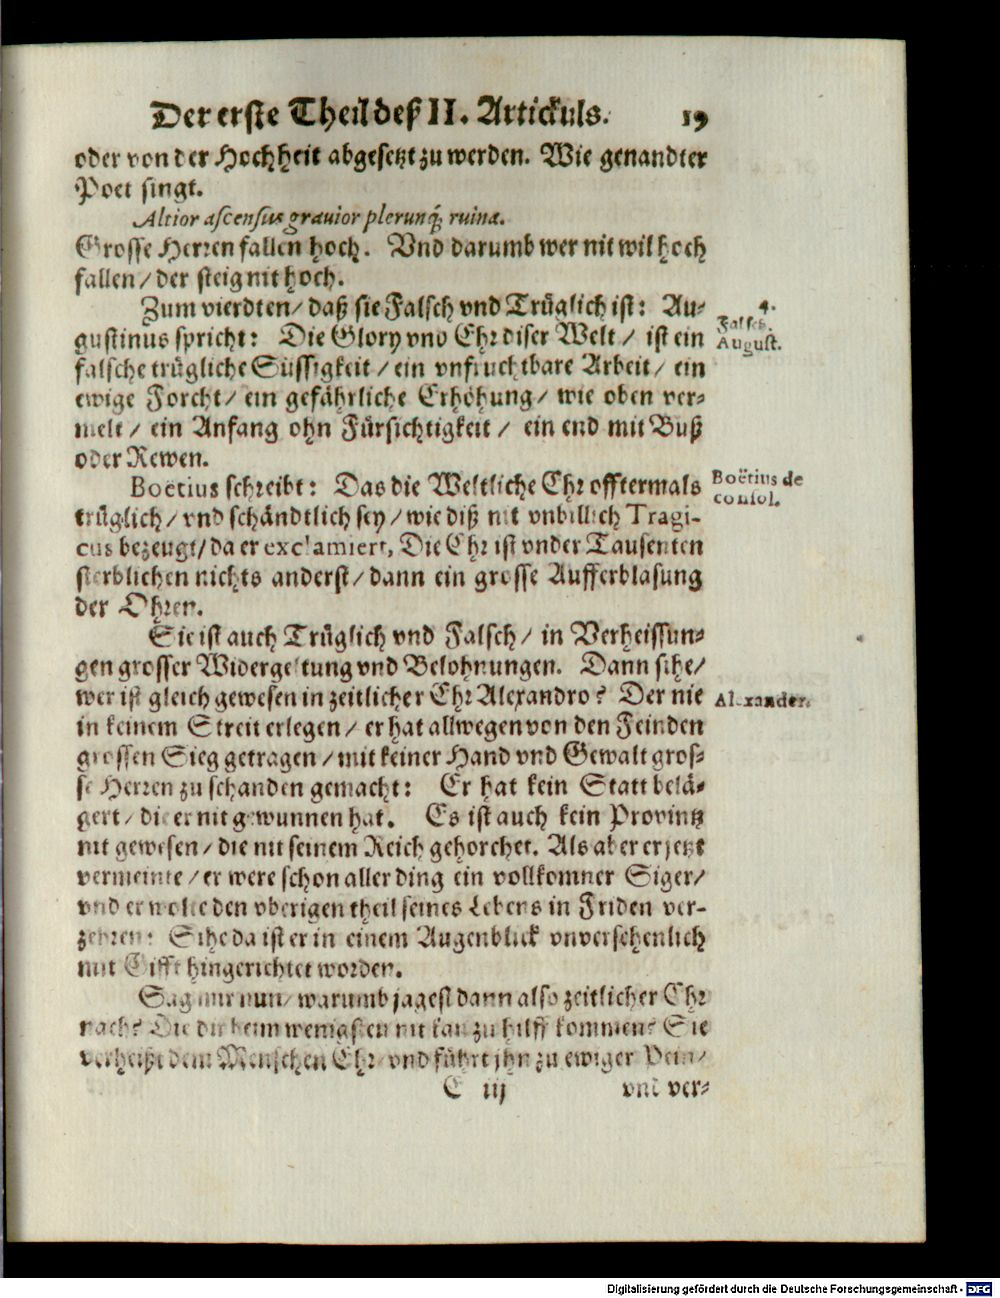 Der erste Theil deß II. Artickuls. 19
oder von der Hochheit abgesetzt zu werden. Wie genandter
Poet singt.
Altior ascensus grauior plerunq́; ruina.
Grosse Herren fallen hoch. Vnd darumb wer nit wil hoch
fallen / der steig nit hoch.
Zum vierdten / daß sie Falsch vnd Trüglich ist: Au-
4.
Falsch.
gustinus spricht: Die Glory vnd Ehr diser Welt / ist ein
August.
falsche trügliche Süssigkeit / ein vnfruchtbare Arbeit / ein
ewige Forcht / ein gefährliche Erhöhung / wie oben ver-
melt / ein Anfang ohn Fürsichtigkeit / ein end mit Buß
oder Rewen.
Boëtius schreibt: Das die Weltliche Ehr offtermals
Boëtius de
consol.
trüglich / vnd schändtlich sey / wie diß nit vnbillich Tragi-
cus bezeugt / da er exclamiert, Die Ehr ist vnder Tausenten
sterblichen nichts anderst / dann ein grosse Aufferblasung
der Ohren.
Sie ist auch Trüglich vnd Falsch / in Verheissun-
gen grosser Widergeltung vnd Belohnungen. Dann sihe /
wer ist gleich gewesen in zeitlicher Ehr Alexandro? Der nie
Alexander.
in keinem Streit erlegen / er hat allwegen von den Feinden
grossen Sieg getragen / mit keiner Hand vnd Gewalt gros-
se Herren zu schanden gemacht: Er hat kein Statt belä-
gert / die er nit gewunnen hat. Es ist auch kein Provintz
nit gewesen / die nit seinem Reich gehorchet. Als aber er jetzt
vermeinte / er were schon aller ding ein vollkomner Siger /
vnd er wolte den vberigen theil seines Lebens in Friden ver-
zehren: Sihe da ist er in einem Augenblick vnversehenlich
mit Gifft hingerichtet worden.
Sag mir nun / warumb jagest dann also zeitlicher Ehr
nach? Die dir beim wenigsten nit kan zu hilff kommen? Sie
verheißt dem Menschen Ehr / vnd führt jhn zu ewiger Pein /
C iij vnd ver-
Digitalisierung gefördert durch die Deutsche Forschungsgemeinschaft - DFG